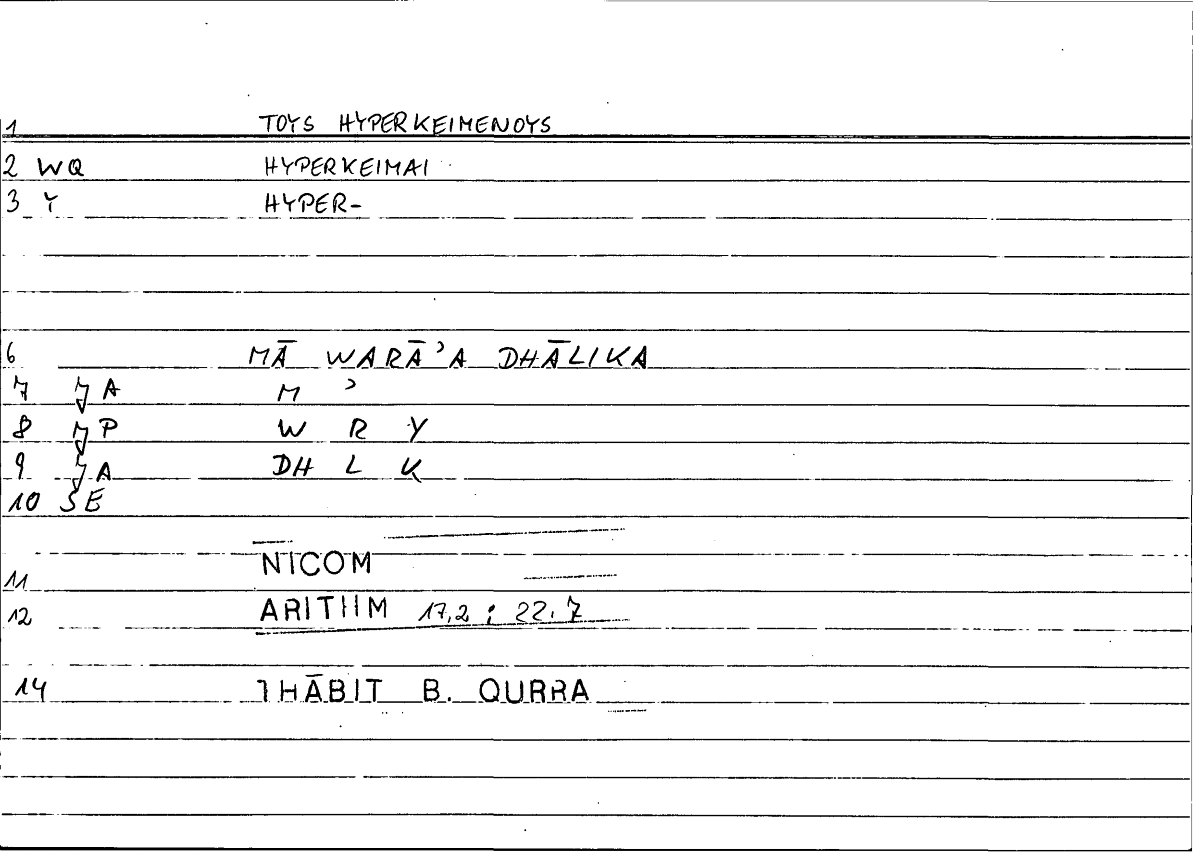 1 TOYS HYPERKEIMENOYS
2 WQ HYPERKEIMAI
3 Y HYPER-
6 MĀ WARĀʾA DHĀLIKA
7 A M ʾ
8 P W R Y
9 A DH L K
10 SE
11 NICOM
12 ARITHM 17,2 ; 22.7
14 THĀBIT B. QURRA